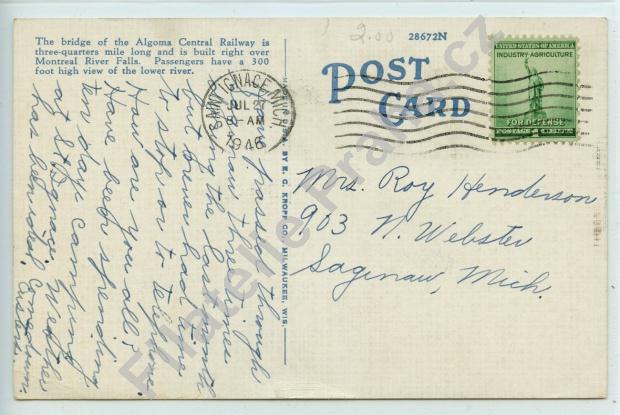 The bridge of the Algoma Central Railway is
three-quarters mile long and is built right over
Montreal River Falls. Passengers have a 300
foot high view of the lower river.
Have passed through
Saginaw three times
during the last month
but never had time
to stop or to telephone.
How are you all?
Have been spending
ten days camping
at St. Ignace. Weather
has been ideal.
MADE IN U.S.A. BY E. C. KROPP CO., MILWAUKEE, WIS.
2.00
28672N
POST
CARD
SAINT IGNACE, MICH.
JUL 27
8-AM
1946
UNITED STATES OF AMERICA
INDUSTRY · AGRICULTURE
FOR DEFENSE
POSTAGE 1 CENT
Mrs. Roy Henderson
903 N. Webster
Saginaw, Mich.
Filatelie Praha.cz